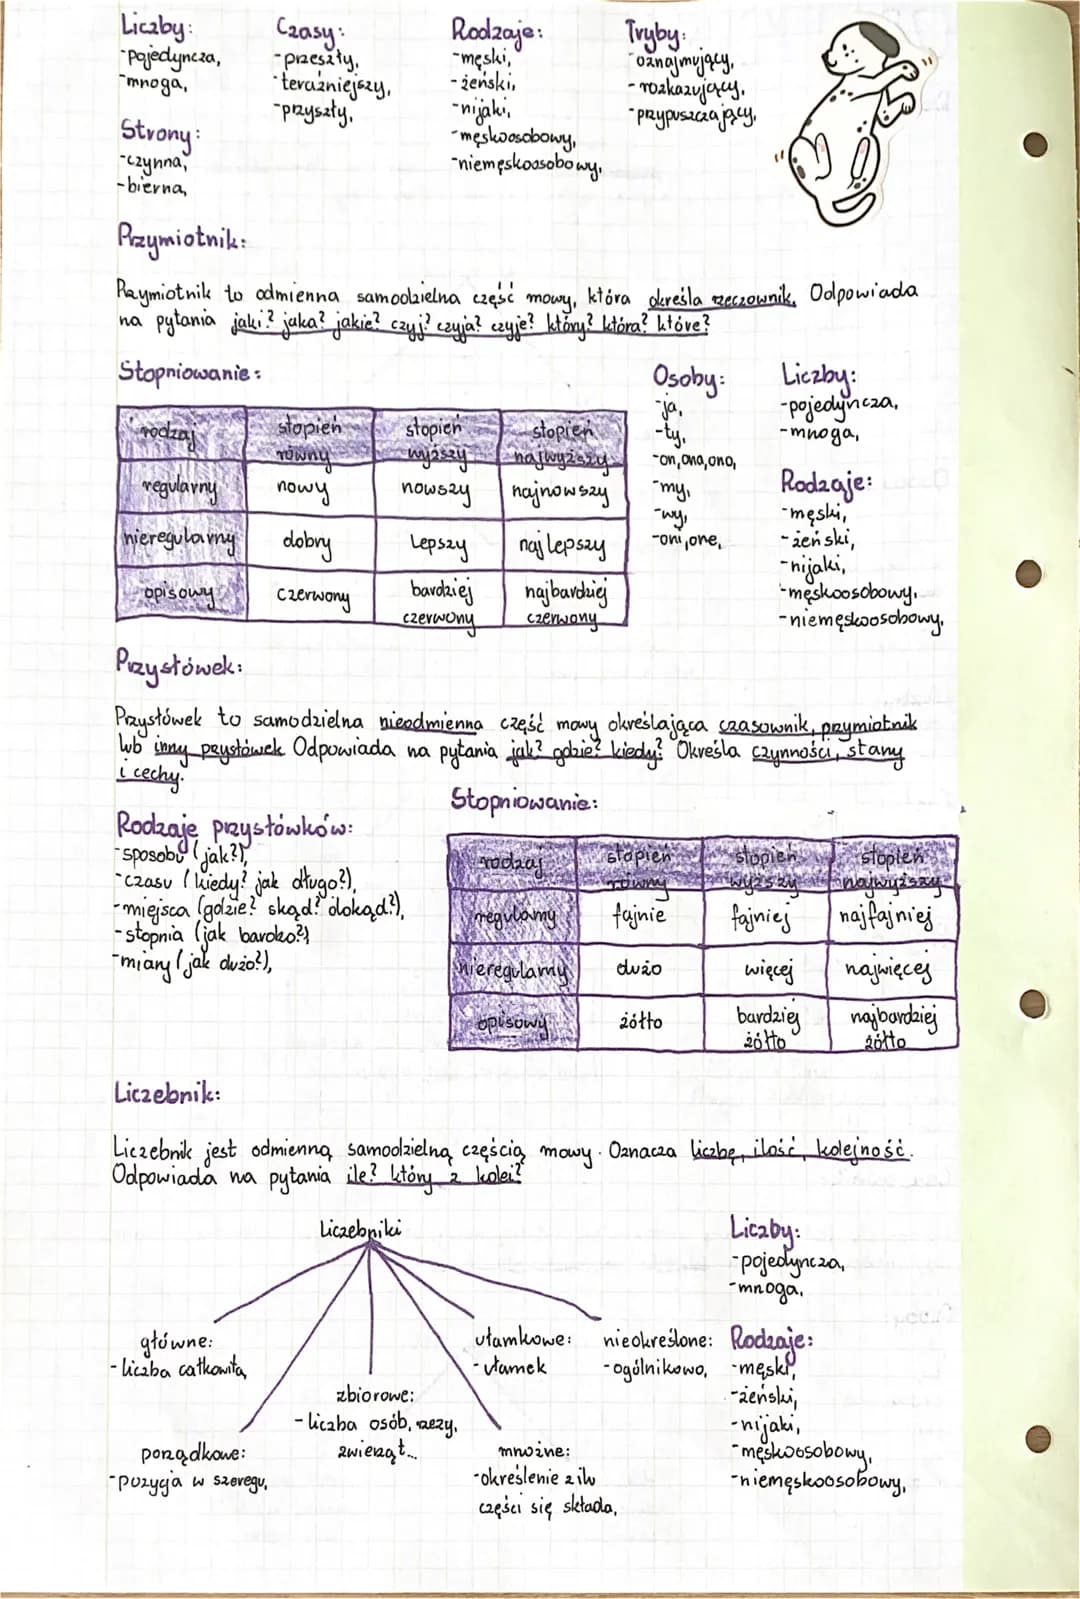 Liczby:
-pojedyncza,
-mnoga,
Strony:
-czynna,
-bierna,
Czasy:
-przeszły,
-teraźniejszy,
-przyszły,
Rodzaje:
-męski,
-żeński,
-nijaki,
-męskoosobowy,
-niemęskoosobowy,
Tryby:
-oznajmujący,
-rozkazujący,
-przypuszczający,
Przymiotnik:
Przymiotnik to odmienna samodzielna część mowy, która określa rzeczownik. Odpowiada
na pytania jaki? jaka? jakie? czyj? czyja? czyje? który? która? które?
Stopniowanie:
rodzaj stopień równy stopień wyższy stopień najwyższy
regularny nowy nowszy najnowszy
nieregularny dobry lepszy najlepszy
opisowy czerwony bardziej czerwony najbardziej czerwony
Osoby:
-ja,
-ty,
-on, ona, ono,
-my,
-wy,
-oni, one,
Liczby:
-pojedyncza,
-mnoga,
Rodzaje:
-męski,
-żeński,
-nijaki,
-męskoosobowy,
-niemęskoosobowy,
Przysłówek:
Przysłówek to samodzielna nieodmienna część mowy określająca czasownik, przymiotnik
lub inny przysłówek Odpowiada na pytania jak? gdzie? kiedy? Określa czynności, stany
i cechy.
Rodzaje przysłówków:
-sposobu (jak?),
-czasu (kiedy? jak długo?),
-miejsca (gdzie? skąd? dokąd?),
-stopnia (jak bardzo?)
-miary (jak dużo?),
Stopniowanie:
rodzaj stopień równy stopień wyższy stopień najwyższy
regularny fajnie fajniej najfajniej
nieregularny dużo więcej najwięcej
opisowy żółto bardziej żółto najbardziej żółto
Liczebnik:
Liczebnik jest odmienną samodzielną częścią mowy. Oznacza liczbę, ilość, kolejność.
Odpowiada na pytania ile? który z kolei?
Liczebniki
główne:
-liczba całkowita,
porządkowe:
-pozycja w szeregu,
zbiorowe:
-liczba osób, rzezy,
zwierząt...
ułamkowe:
-ułamek
mnożne:
-określenie z ilu
części się składa,
nieokreślone:
-ogólnikowo,
Liczby:
-pojedyncza,
-mnoga,
Rodzaje:
-męski,
-żeński,
-nijaki,
-męskoosobowy,
-niemęskoosobowy,